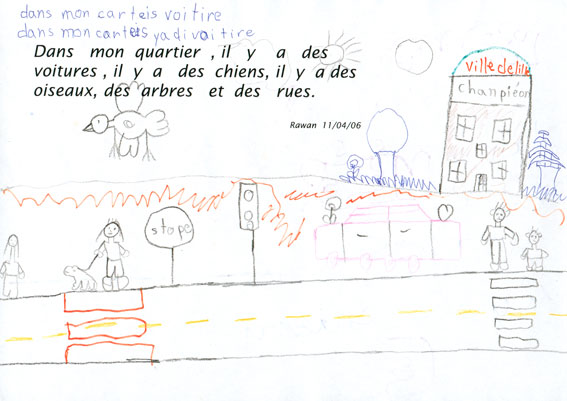 dans mon carteis voitire
dans mon carteis yadivoitire
Dans mon quartier , il y a des
voitures , il y a des chiens, il y a des
oiseaux, des arbres et des rues.
Rawan 11/04/06
ville de lille
chanpiéon
stope